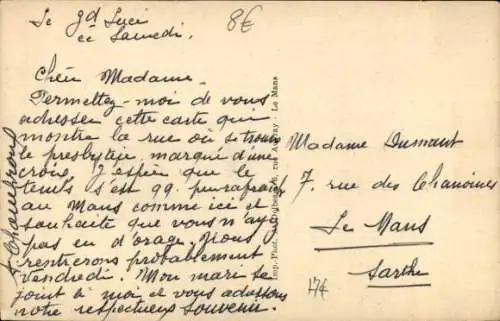 Le Gd Lucé
ce Samedi.
8€
Chère Madame.
Permettez-moi de vous
adresser cette carte qui
montre la rue où se trouve
le presbytère, marqué d'une
croix. J'espère que le
temps s'est qq. peu rafraichi
au Mans comme ici et
souhaite que vous n'ayez
pas eu d'orage. Nous
rentrerons probablement
vendredi. Mon mari se
joint à moi et vous adressons
notre respectueux souvenir.
Imp. Phot. rue Auvray - Le Mans
Madame Dumant
7. rue des Chanoines
Le Mans
Sarthe
17€